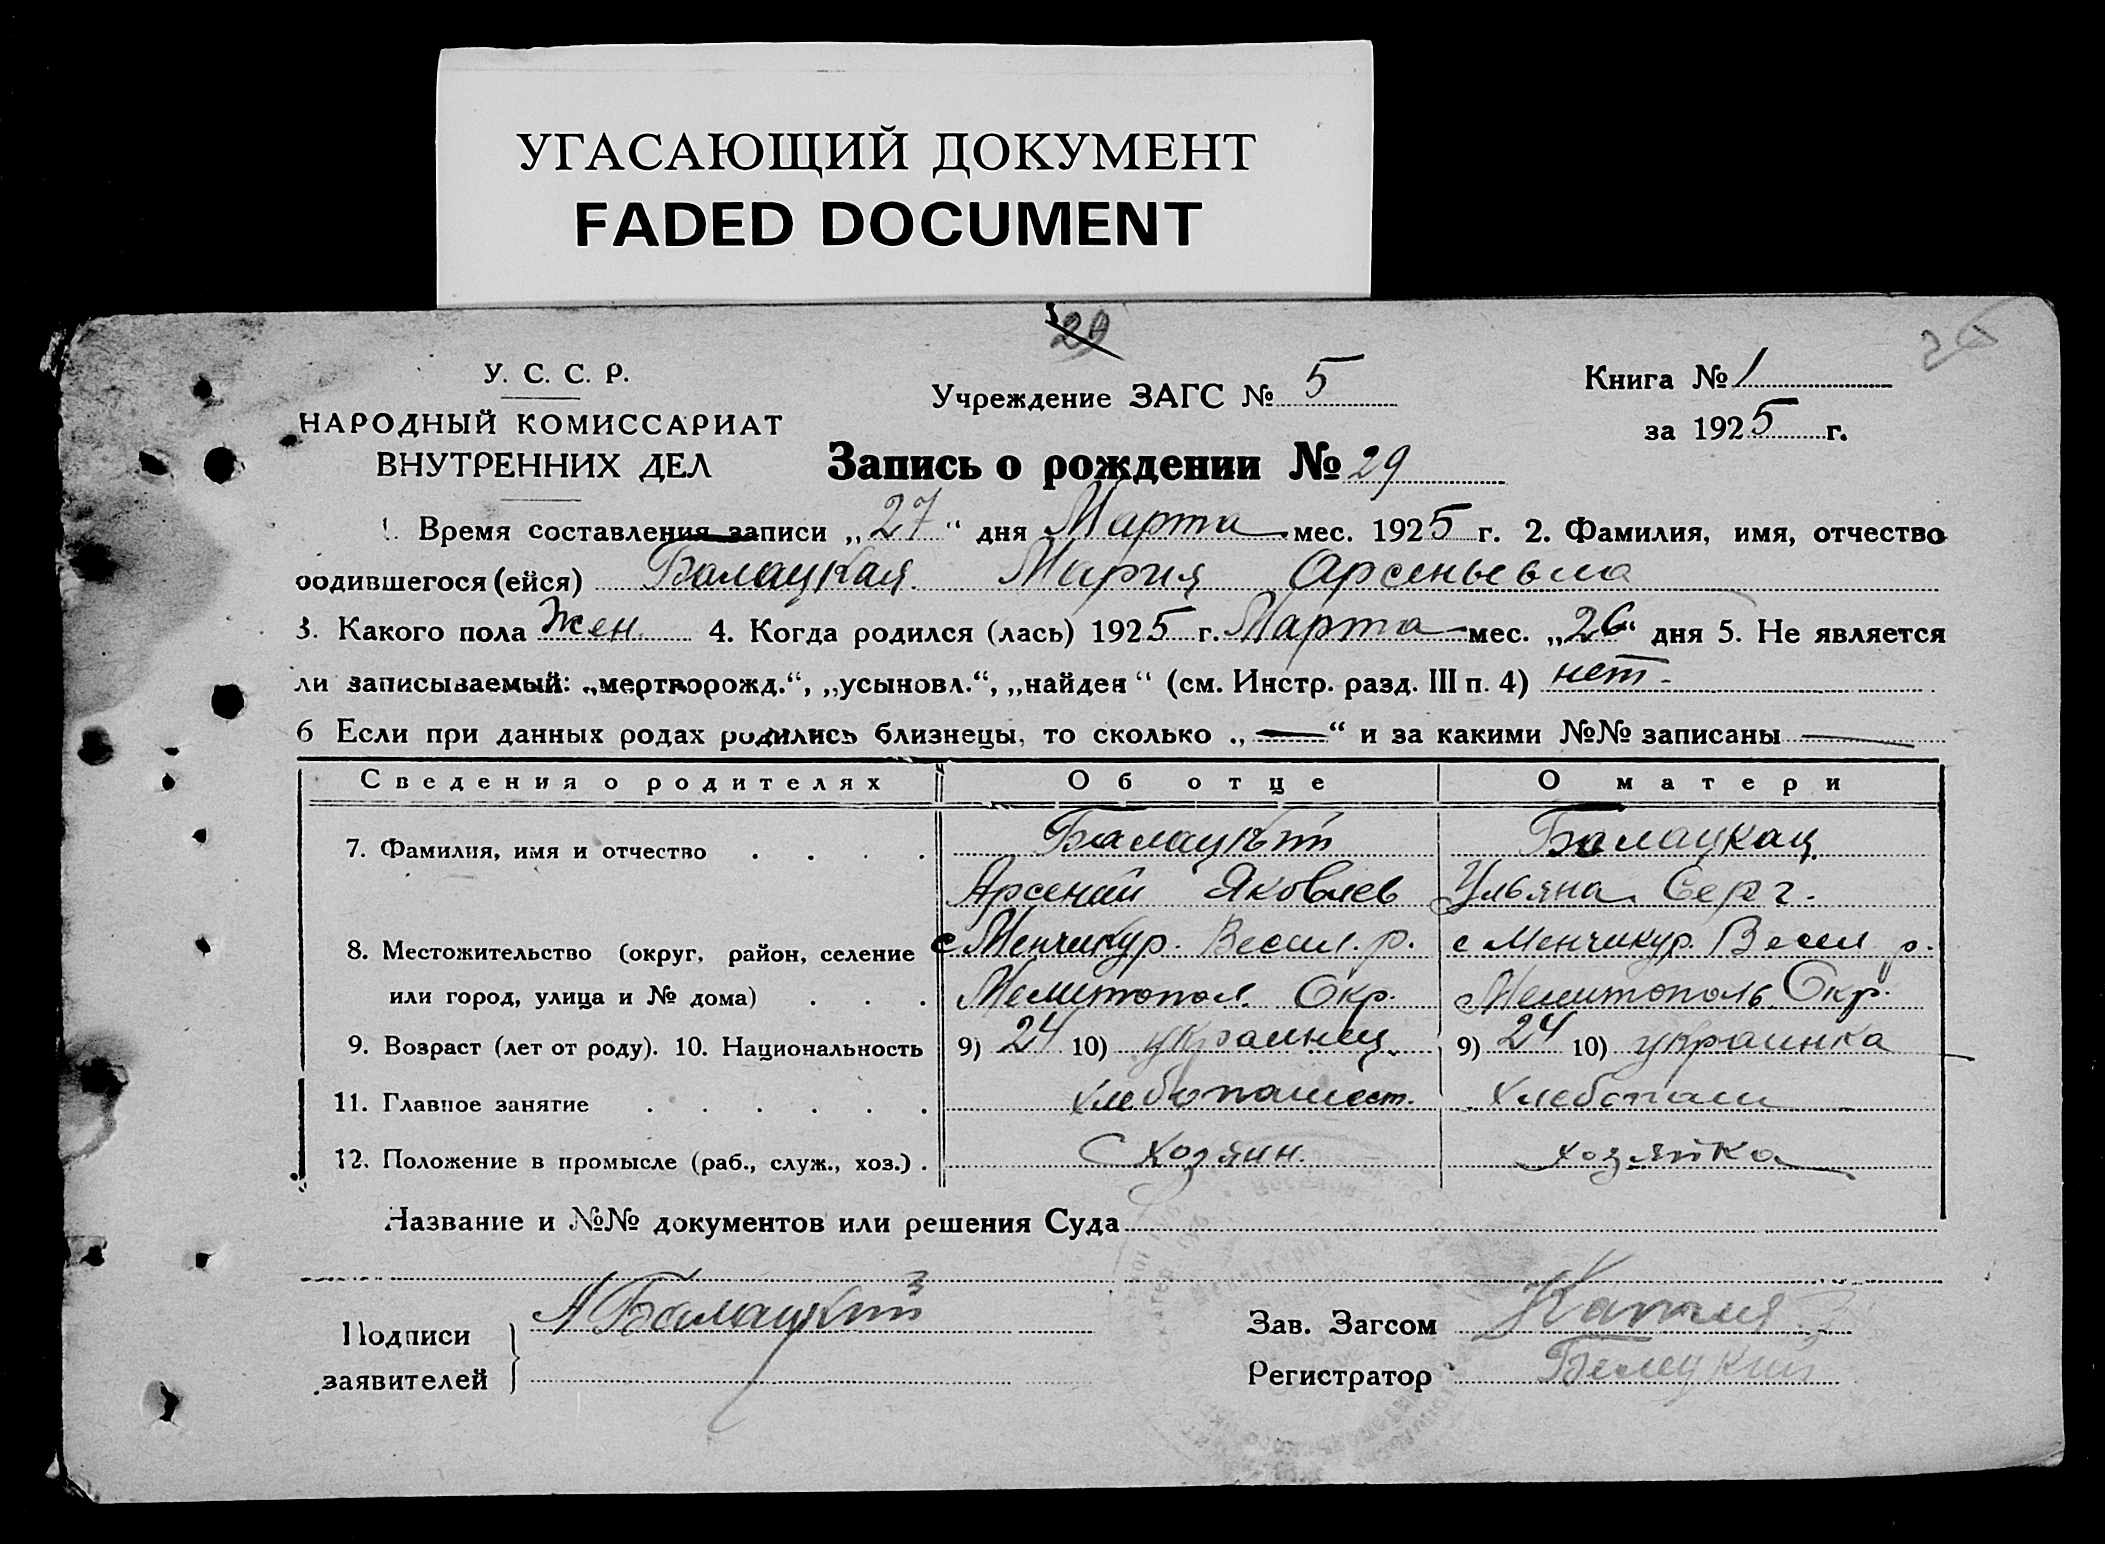 УГАСАЮЩИЙ ДОКУМЕНТ
FADED DOCUMENT
29
У. С. С. Р.
НАРОДНЫЙ КОМИССАРИАТ
ВНУТРЕННИХ ДЕЛ
Учреждение ЗАГС № 5
Книга № 1
за 1925 г.
Запись о рождении № 29
1. Время составления записи „27“ дня Марта мес. 1925 г. 2. Фамилия, имя, отчество
родившегося (ейся) Балацкая Мария Арсеньевна
3. Какого пола Жен. 4. Когда родился (лась) 1925 г. Марта мес. „26“ дня 5. Не является
ли записываемый: „мертворожд.“, „усыновл.“, „найден“ (см. Инстр. разд. III п. 4) нет.
6 Если при данных родах родились близнецы, то сколько „—“ и за какими №№ записаны —
Сведения о родителях Об отце О матери
7. Фамилия, имя и отчество . . . . Балацкий Балацкая
Арсений Яковлев Ульяна Серг.
8. Местожительство (округ, район, селение с Менчикур. Весел. р. с Менчикур. Весел р.
или город, улица и № дома) . . . Мелитопол. Окр. Мелитополь. Окр.
9. Возраст (лет от роду). 10. Национальность 9) 24 10) украинец 9) 24 10) украинка
11. Главное занятие . . . . . . хлебопашест. хлебопаш
12. Положение в промысле (раб., служ., хоз.) . хозяин. хозяйка
Название и №№ документов или решения Суда
Подписи
заявителей
А Балацкий
Зав. Загсом
Регистратор